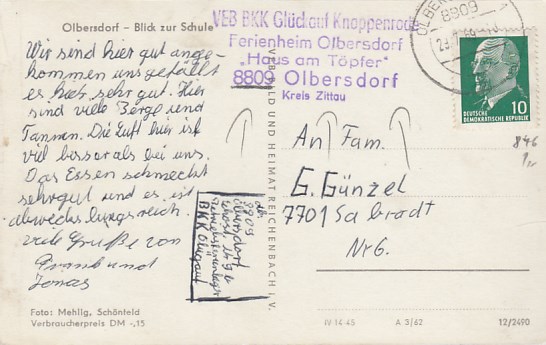 Olbersdorf – Blick zur Schule
Wir sind hier gut ange-
kommen uns gefällt
es hier sehr gut. Hier
sind viele Berge und
Tannen. Die Luft hier ist
viel besser als bei uns.
Das Essen schmeckt
sehrgut und es ist
abwechslungsreich.
viele Grüße von
Frank und
Jonas
Foto: Mehlig, Schönfeld
Verbraucherpreis DM -,15
VEB BKK Glückauf Knappenrode
Ferienheim Olbersdorf
„Haus am Töpfer"
8809 Olbersdorf
Kreis Zittau
VEB BILD UND HEIMAT REICHENBACH i. V.
8809
10
DEUTSCHE
DEMOKRATISCHE REPUBLIK
846
An Fam.
G. Günzel
7701 Sabrodt
Nr6.
8809
Olbersdorf
BKK Glückauf
IV-14-45 A 3/62 12/2490